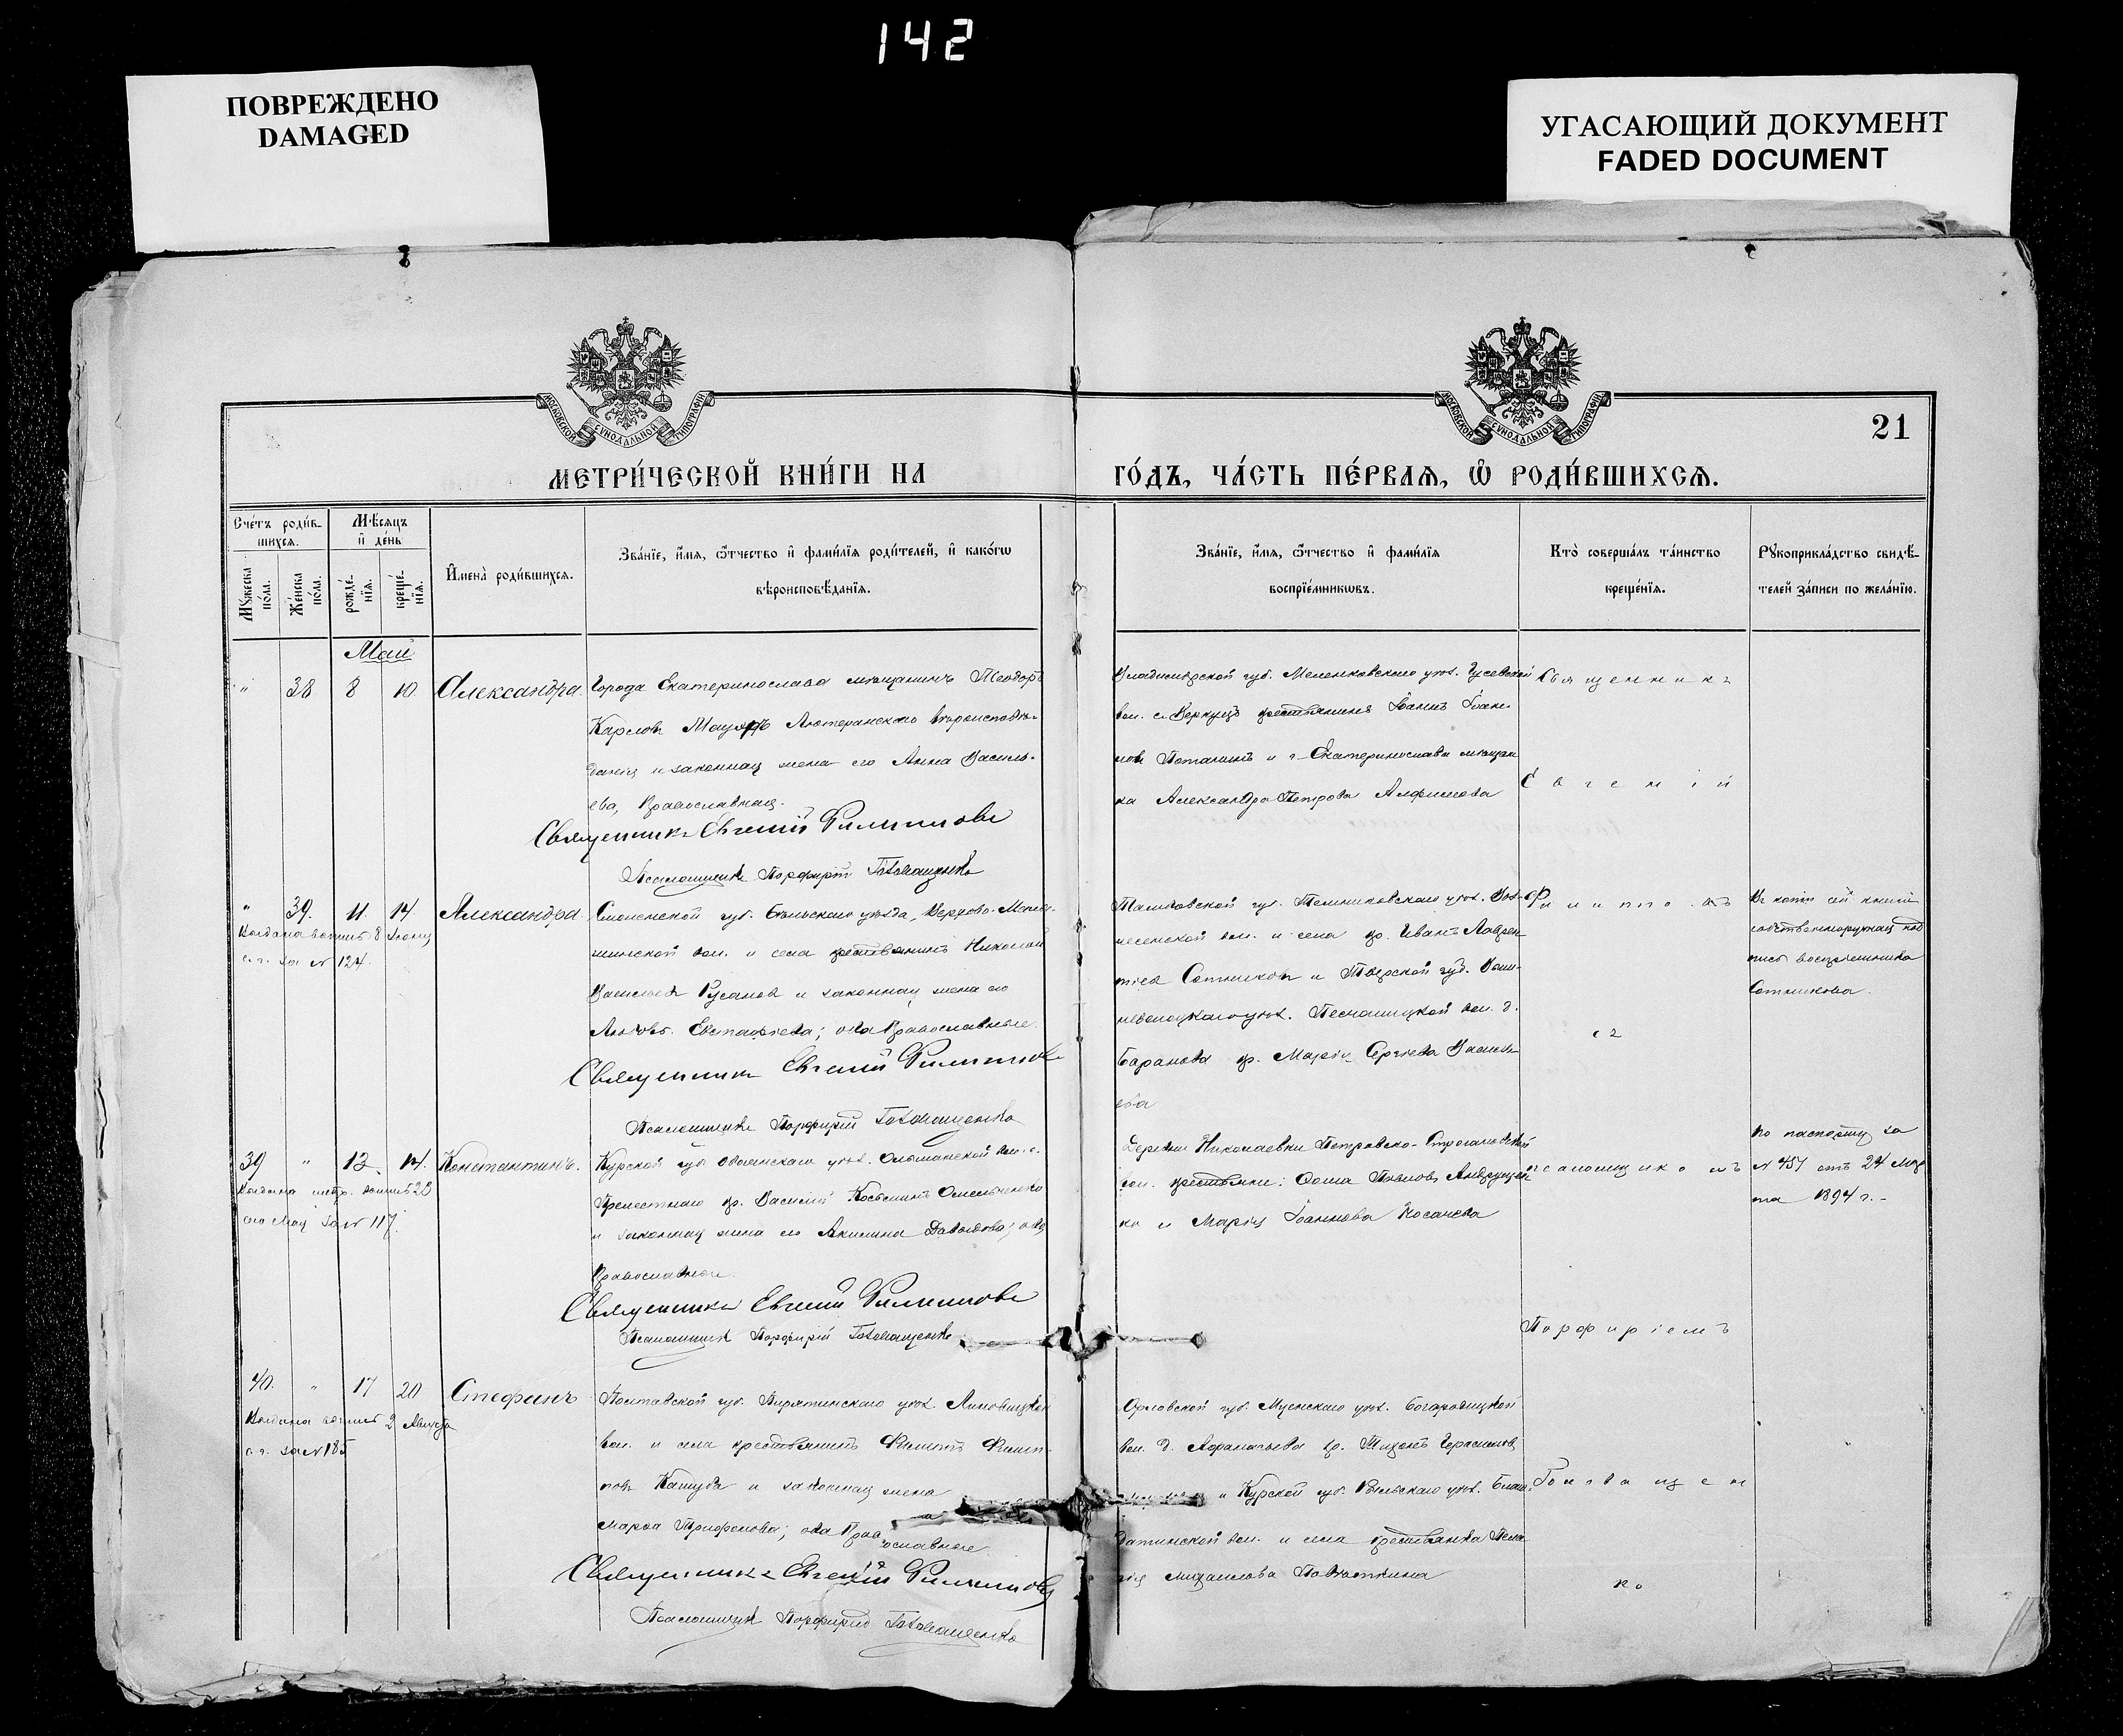 142
ПОВРЕЖДЕНО
DAMAGED
УГАСАЮЩИЙ ДОКУМЕНТ
FADED DOCUMENT
МОСКОВСКОЙ СѴНОДАЛЬНОЙ ТИПОГРАФІИ
МОСКОВСКОЙ СѴНОДАЛЬНОЙ ТИПОГРАФІИ
21
МЕТРИ́ЧЕСКОЙ КНИ́ГИ НА
ГО́ДЪ, ЧА́СТЬ ПЕ́РВАѦ, Ѡ҆ РОДИ́ВШИХСѦ.
Сче́тъ роди́в-
шихсѧ.
Мꙋ́жеска по́ла.
Же́нска по́ла.
Мѣ́сѧцъ
и҆ де́нь
рожде́-нїѧ.
креще́-нїѧ.
И҆мена̀ роди́вшихсѧ.
Зва́нїе, и҆́мѧ, ѻ҆́тчество и҆ фами́лїѧ роди́телей, и҆ како́гѡ
вѣроисповѣ́данїѧ.
Зва́нїе, и҆́мѧ, ѻ҆́тчество и҆ фами́лїѧ
воспрїе́мникѡвъ.
Кто̀ соверша́лъ та́инство
креще́нїѧ.
Рꙋкоприкла́дство свидѣ́-
телей за́писи по жела́нїю.
Май
" 38 8 10 Александра.
Города Екатеринослава мѣщанинъ Теодоръ
Карловъ Лютеранскаго вѣроисповѣ-
данія и законная жена его Анна Василь-
ева, Православная.
Священникъ Евгеній Филипповъ
Псаломщикъ Порфирій Головащенко
Владимірской губ. Меленковскаго уѣз. Гусевской
вол. с. крестьянинъ Іоаннъ Іоан-
новъ Потапинъ и г. Екатеринослава мѣщан
ка Александра Петрова Алфимова
Священникъ
Евгеній
" 39. 11. 14 Александра
Выдана 8 Іюня
с.г. за № 124.
Смоленской губ. Бѣльскаго уѣзда,
вол. и села крестьянинъ Николай
Васильевъ Русановъ и законная жена его
Любовь Евстафіева; оба Православные.
Священникъ Евгеній Филипповъ
Псаломщикъ Порфирій Головащенко
Тамбовской губ. Темниковскаго уѣз. Воз-
несенской вол. и села кр. Иванъ Лаврен
тіевъ Сотниковъ и Тверской губ. Выш-
неволоцкаго уѣз. вол. д.
Баранова кр. Марія Сергіева Василь
ева
Филипповъ
съ
Къ копіи сей книги
собственноручная под
пись воспріемника
Сотникова.
39 " 13. 14. Константинъ.
Выдана метр. выпись 23
его Мая за № 117.
Курской губ. Обоянскаго уѣз. Ольшанской вол. с.
кр. Василій Косьминъ Омельченко
и законная жена его Акилина Давыдова; оба
Православные.
Священникъ Евгеній Филипповъ
Псаломщикъ Порфирій Головащенко
Деревни Николаевки Петровско-
вол. крестьяне: Ѳома Павловъ Андрущен
ко и Марія Іоаннова Косачева
псаломщикомъ
Порфиріемъ
по паспорту за
№ 457 отъ 24 Мар
та 1894 г.
40. " 17 20 Стефанъ
Выдана выпись 2 Августа
с.г. за № 185
Полтавской губ. Пирятинскаго уѣз. Линовицкой
вол. и села крестьянинъ Филиппъ Филип-
повъ и законная жена
Марѳа Трифонова; оба Православные.
Священникъ Евгеній Филипповъ
Псаломщикъ Порфирій Головащенко
Орловской губ. Мценскаго уѣз. Богородицкой
вол. д. Афанасьева кр. Тихонъ Герасимовъ
и Курской губ. Рыльскаго уѣз. Благо-
датинской вол. и села крестьянка Пела
гія Михаилова
Головащен
ко
"